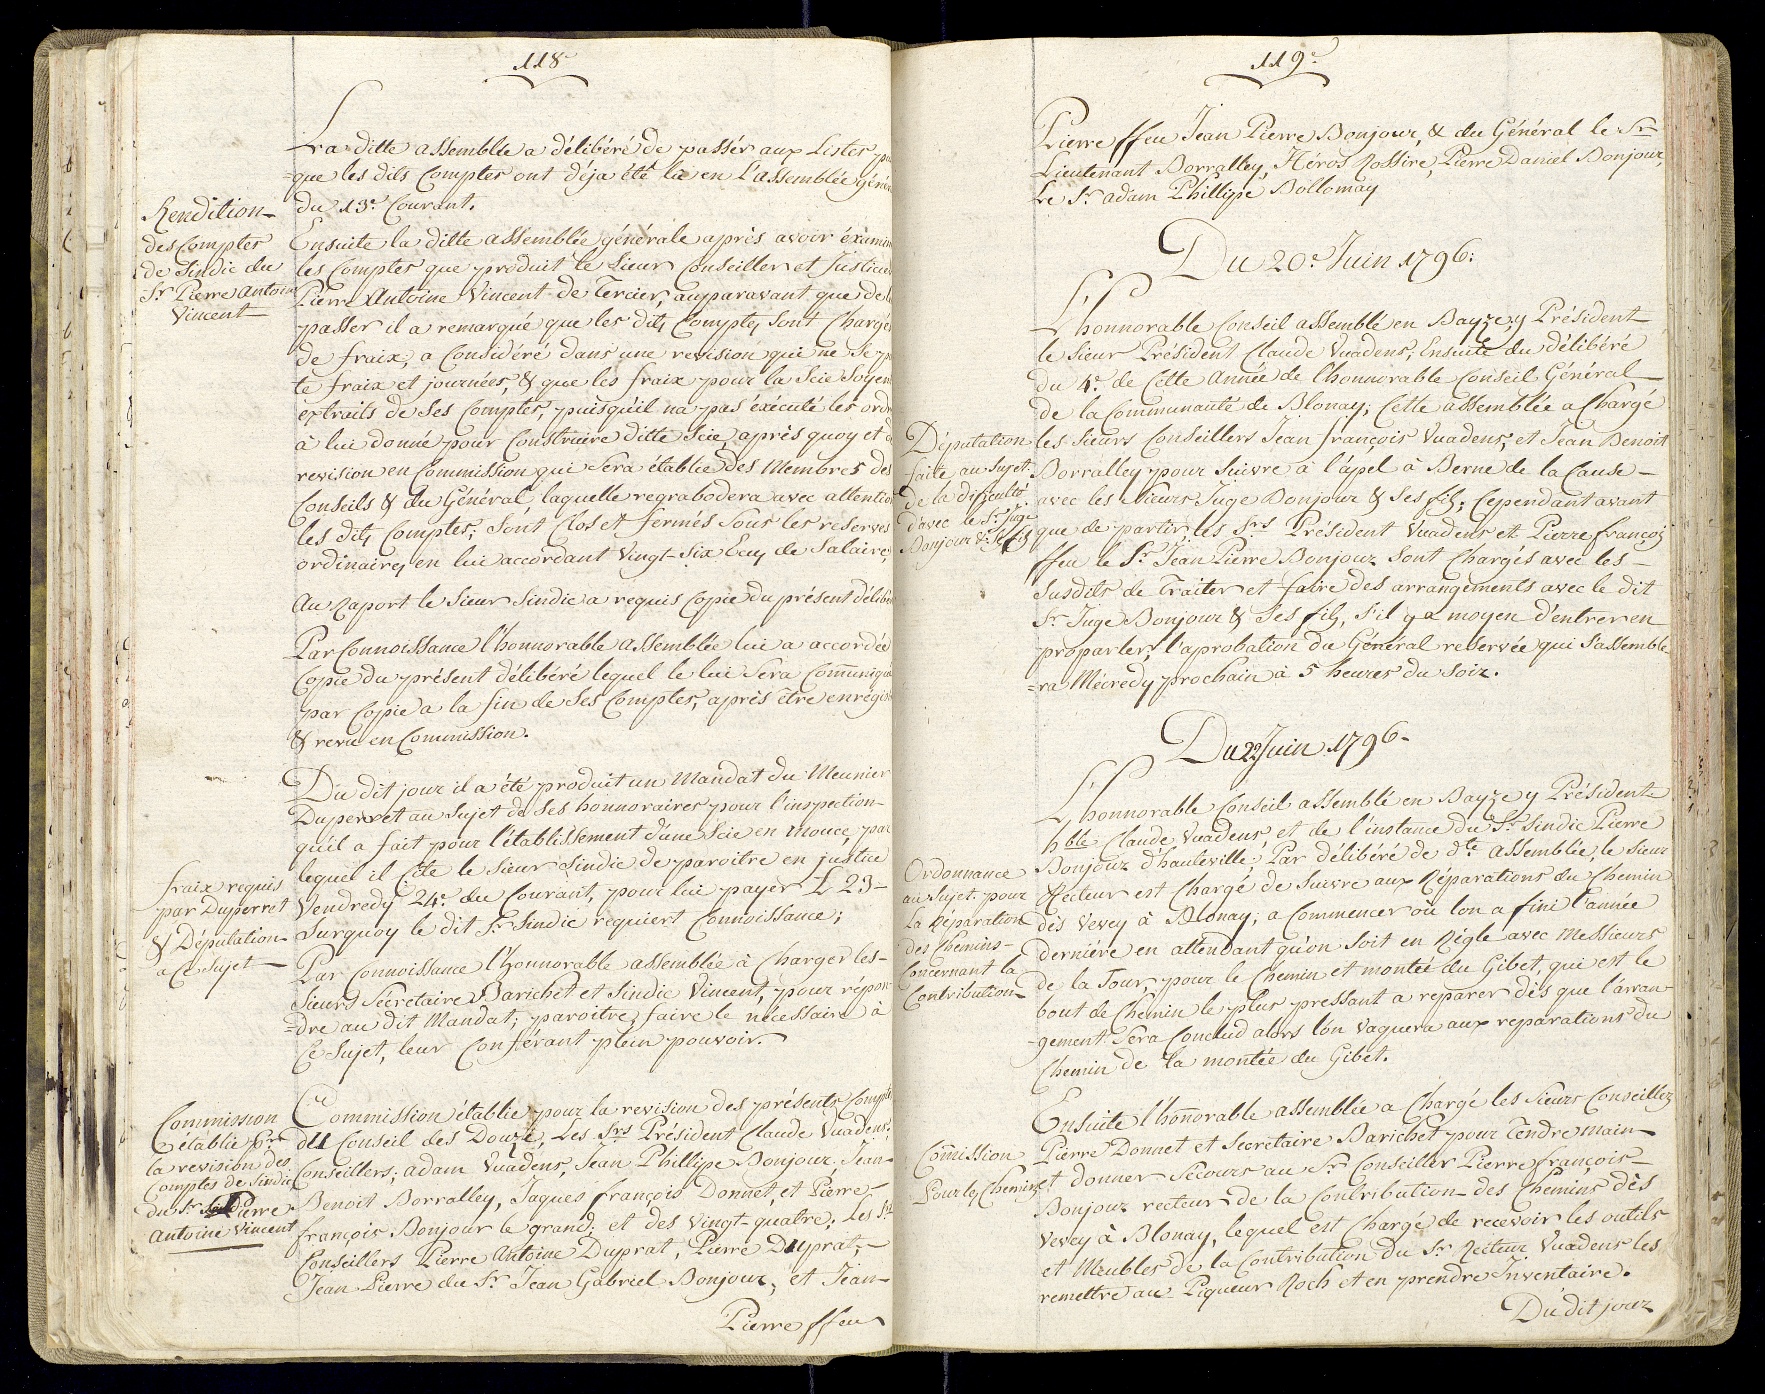 118.
La ditte assemblée a délibéré de passér aux Listes
=que les dits Comptes ont déja été lu en L'assemblée
du 13e Courant.
Rendition
des Comptes
de Sindic du
Sr Pierre Antoine
Vincent
Ensuite la ditte assemblée générale après avoir
les Comptes que produit le Sieur Conseiller et
Pierre Antoine Vincent de Tercier, auparavant que de
passer il a remarqué que les dits Comptes, sont
de fraix, a Considéré dans une revision qui ne se
te fraix et journées, & que les fraix pour la Scie Soyent
extraits de ses Comptes, puisqu'il na pas éxécuté les
à lui donné pour Construire ditte Scie, après quoy et
revision en Commission qui Sera établie des Membres des
Conseils & du Général laquelle regrabodera avec
les dits Comptes, sont Clos et fermés sous les reserves
ordinaires en lui accordant Vingt Six Ecus de Salaire,
Au Raport le Sieur Sindic a requis Copie du présent
Par Connoissance l'honnorable assemblée lui a accordée
Copie du présent délibéré lequel le lui sera
par Copie a la fin de ses Comptes, après être
& revu en Commission.
Du dit jour il a été produit un Mandat du Meunier
Duperret au Sujet de ses honnoraires pour l'inspection
qu'il a fait pour l'établissement d'une Scie en Mouce, par
lequel il Cite le Sieur Sindic de paroitre en justice
Vendredy 24e du Courant, pour lui payer L 23-
Surquoy le dit Sr Sindic requiert Connoissance;
fraix requis
par Duperret
& Députation
a Ce Sujet
Par Connoissance l'honnorable assemblée à Charger les
Sieurs Secretaire Barichet et Sindic Vincent, pour répon
=dre au dit Mandat; paroitre, faire le necessaire à
Ce sujet, leur Conférant plein pouvoir.
Commission
établie pr
la revision des
Comptes de Sindic
du Sr Pierre
Antoine Vincent
Commission établie pour la revision des présents
du Conseil des Douze, Les Srs Président Claude Vuadens,
Conseillers; adam Vuadens, Jean Phillipe Bonjour, Jean
Benoit Borralley, Jaques françois Donnet, et Pierre
françois Bonjour le grand; et des Vingt-quatre; Les Srs
Conseillers Pierre Antoine Duprat, Pierre Duprat,
Jean Pierre du Sr Jean Gabriel Bonjour, et Jean
Pierre ffeu
119.
Pierre ffeu Jean Pierre Bonjour, & du Général le Sr
Lieutenant Borralley, Héros Rossire, Pierre Daniel Bonjour,
Le Sr adam Phillipe Dollomay
Du 20e Juin 1796:
L'honnorable Conseil assemblé en Bayze, y Président
le Sieur Président Claude Vuadens; Ensuite du délibéré
du 4e de Cette Année de l'honnorable Conseil Général
de la Communauté de Blonay; Cette assemblée a Chargé
Députation
faite au Sujet
de la dificulté
d'avec le Sr Juge
Bonjour & Ses fils
les Sieurs Conseillers Jean françois Vuadens, et Jean Benoit
Borralley pour suivre a l'apel à Berne de la Cause
avec les Sieurs Juge Bonjour & Ses fils; Cependant avant
que de partir, les Srs Président Vuadens et Pierre françois
ffeu le Sr Jean Pierre Bonjour sont Chargés avec les
susdits de Traiter et faire des arrangements avec le dit
Sr Juge Bonjour & Ses fils, s'il y a moyen d'entrer en
proparler, l'aprobation du Général reservée qui s'assemble
=ra Mécredy prochain à 5 heures du soir.
Du 22 Juin 1796-
L'honnorable Conseil assemblé en Bayze y Président
hble Claude Vuadens, et de l'instance du Sr Sindic Pierre
Bonjour d'hauteville; Par délibéré de dte assemblée, le Sieur
Ordonnance
au Sujet pour
La Réparation
des Chemins
Concernant la
Contribution
Recteur est Chargé de suivre aux Réparations du Chemin
dès Vevey à Blonay, a Commencer où l'on a fini l'année
derniére en attendant qu'on soit en Régle avec Messieurs
de la Tour, pour le Chemin et montée du Gibet, qui est le
bout de Chemin le plus pressant a reparer dès que l'arran
-gement sera Conclud alors l'on vaquera aux reparations du
Chemin de la montée du Gibet.
Commission
Pour les Chemins
Ensuite l'honnorable assemblée a Chargé les Sieurs Conseiller
Pierre Donnet et Secretaire Barichet pour tendre main
et donner Secours au Sr Conseiller Pierre françois
Bonjour recteur de la Contribution des Chemins dès
Vevey à Blonay, lequel est Chargé de recevoir les outils
et Meubles de la Contribution du Sr Recteur Vuadens les
remettre au Piqueur Roch et en prendre Inventaire.
Du dit jour